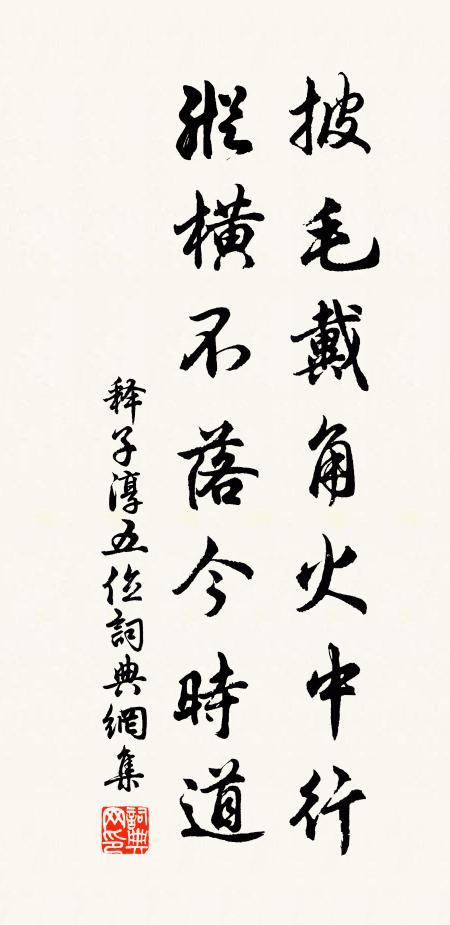 披毛戴角火中行
縱橫不落今時道
释子淳五位詞典網集
詞典
网印